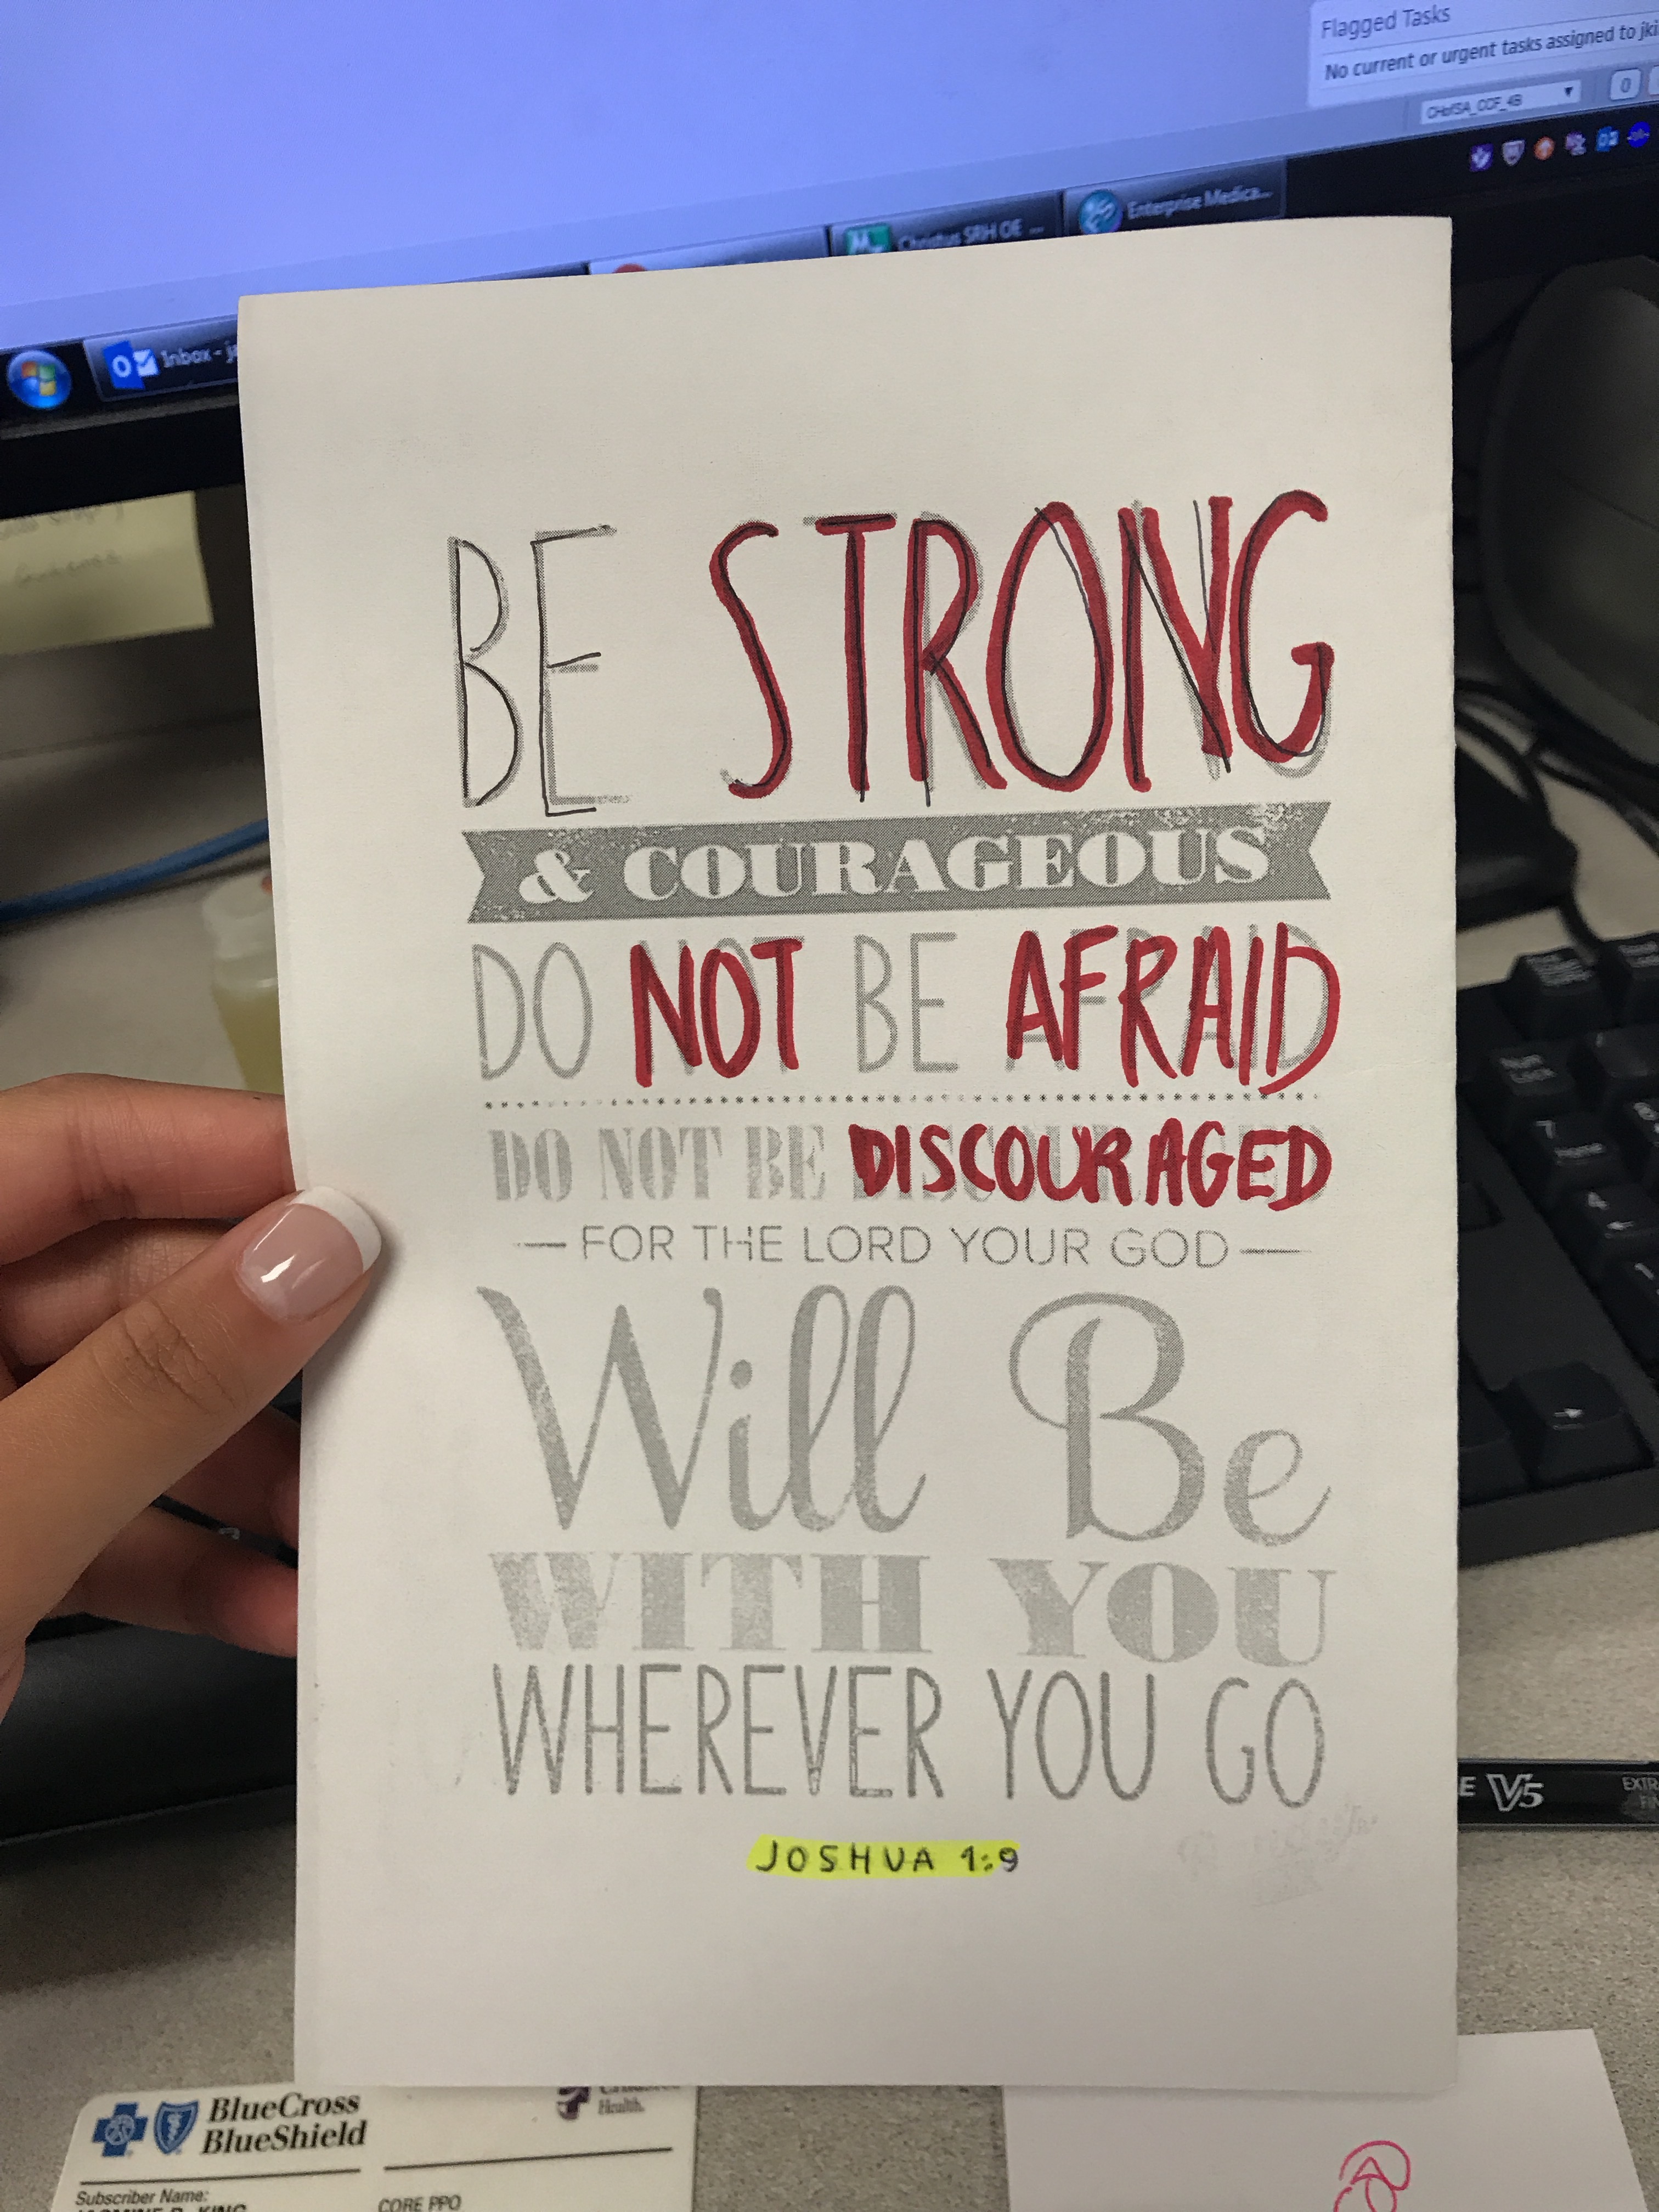 Flagged Tasks
No current or urgent tasks assigned to jki
CHofSA_CCF_4B
0
Enterprise Medica...
Christus SRH OE ...
Inbox - ja
BE STRONG
& COURAGEOUS
DO NOT BE AFRAID
DO NOT BE DISCOURAGED
— FOR THE LORD YOUR GOD —
Will Be
WITH YOU
WHEREVER YOU GO
JOSHUA 1:9
V5
EXTR
BlueCross
BlueShield
Health.
Subscriber Name:
CORE PPO